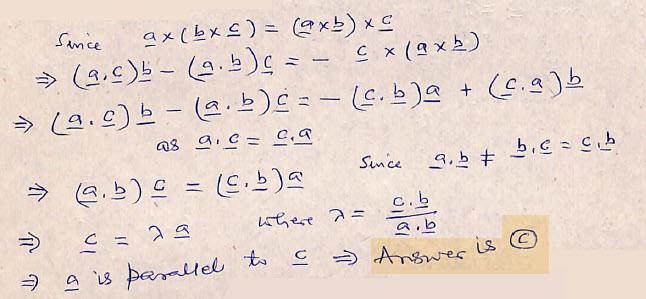 Since a×(b×c) = (a×b)×c
⇒ (a.c)b − (a.b)c = − c×(a×b)
⇒ (a.c)b − (a.b)c = − (c.b)a + (c.a)b
as a.c = c.a
⇒ (a.b)c = (c.b)a Since a.b ≠ b.c = c.b
⇒ c = λa where λ = c.b / a.b
⇒ a is parallel to c ⇒ Answer is Ⓒ